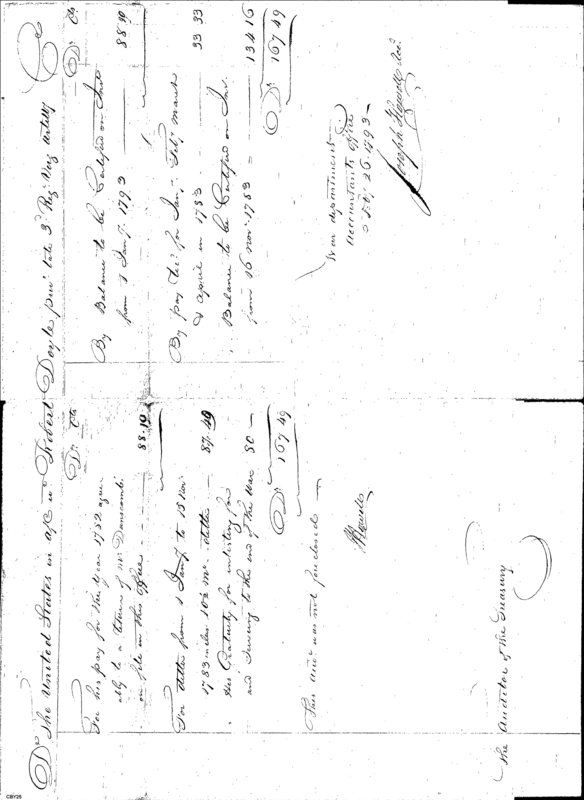 Dr The United States in a/c wt Robert Doyle priv.t late 3d Regt Virg Artilly Cr
Dr Cts
For his pay for the year 1782 agree
ably to a return of Mr Dunscomb
on file in this office 88.10
For ditto from 1 Jany to 15 Novr
1783 inclus. 10½ Ms. ditto 87.49
His Gratuity for inlisting for
and serving to the end of the War 80
Dr 167 49
This accot was not foreclosed
JHowell
The Auditor of the Treasury
Dr Cts
By Balance to be Certified on Int
from 1 Jany 1793 88 10
By pay for Jany Feby March
& April in 1783 33 33
Balance to be Certified on Int.
from 16 Novr 1783 134 16
Dr 167 49
War department
Accountants office
26 1793
Joseph Howell
CBY28